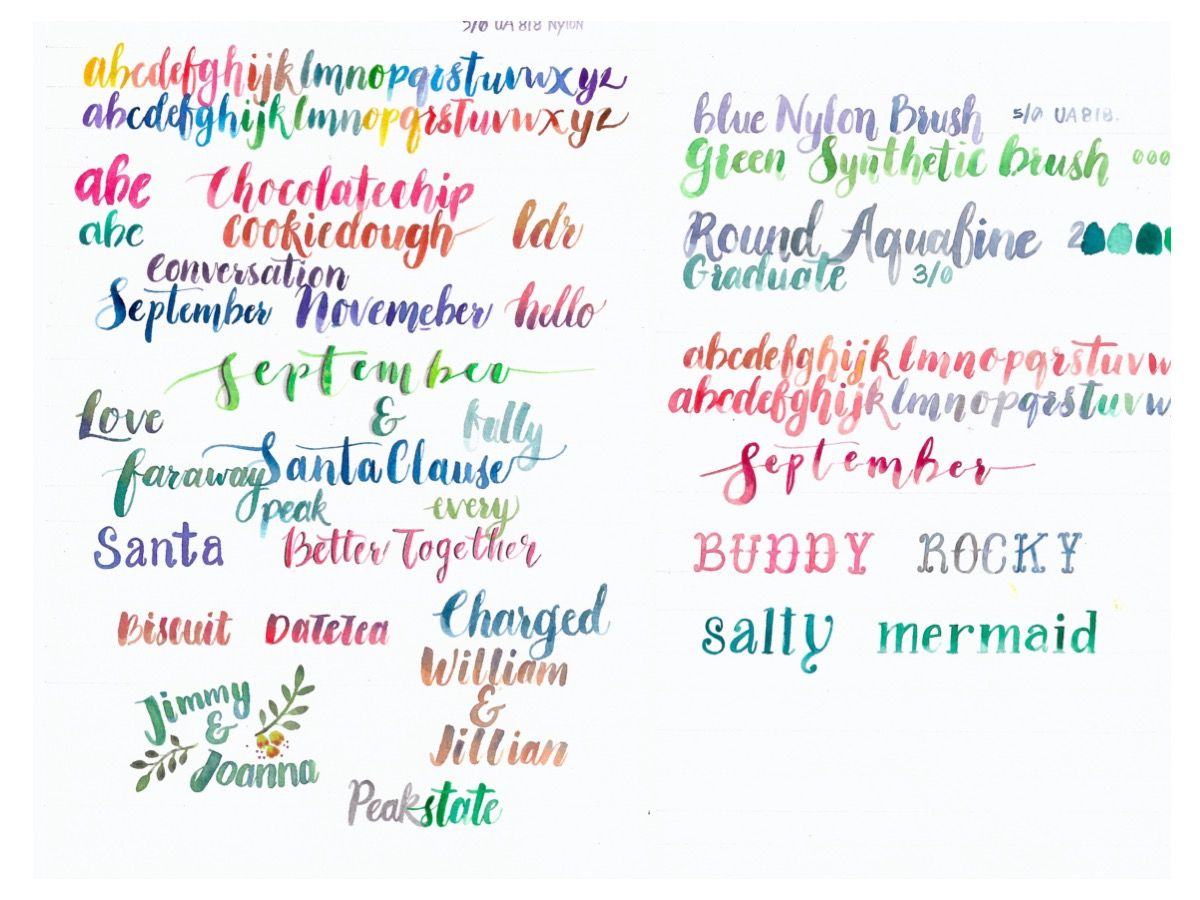 5/0 UA 818 Nylon
abcdefghijklmnopqrstuvwxyz
abcdefghijklmnopqrstuvwxyz
abc Chocolatechip
abc cookiedough ldr
Conversation
September Novemeber hello
September
Love & fully
faraway Santa Clause
peak every
Santa Better Together
Biscuit DateTea Charged
William
&
Jillian
Jimmy
&
Joanna
Peakstate
blue Nylon Brush 5/0 UA 818.
Green Synthetic brush 000
Round Aquafine 2
Graduate 3/0
abcdefghijklmnopqrstuvw
abcdefghijklmnopqrstuvw
September
BUDDY ROCKY
salty mermaid